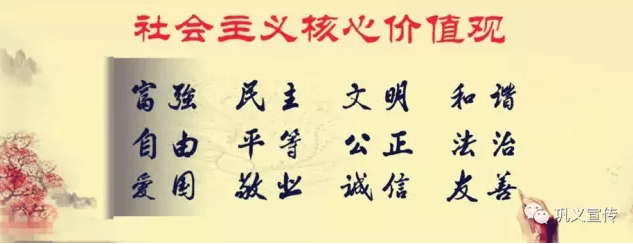 社会主义核心价值观
富强 民主 文明 和谐
自由 平等 公正 法治
爱国 敬业 诚信 友善
巩义宣传